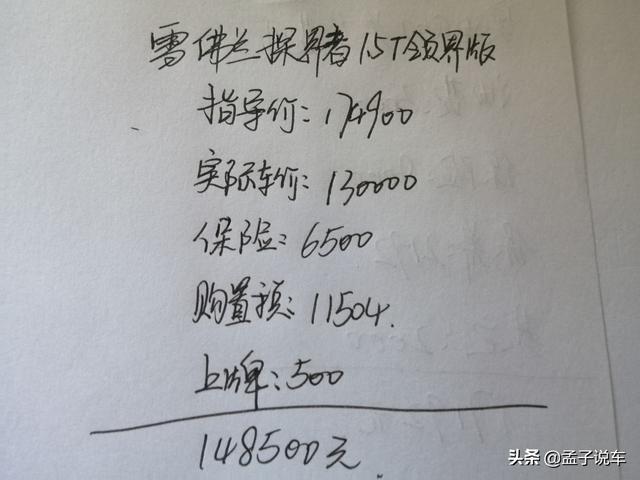 雪佛兰探界者15T领界版
指导价:174900
实际车价:130000
保险:6500
购置预:11504.
上牌:500
148500元
头条 @孟子说车